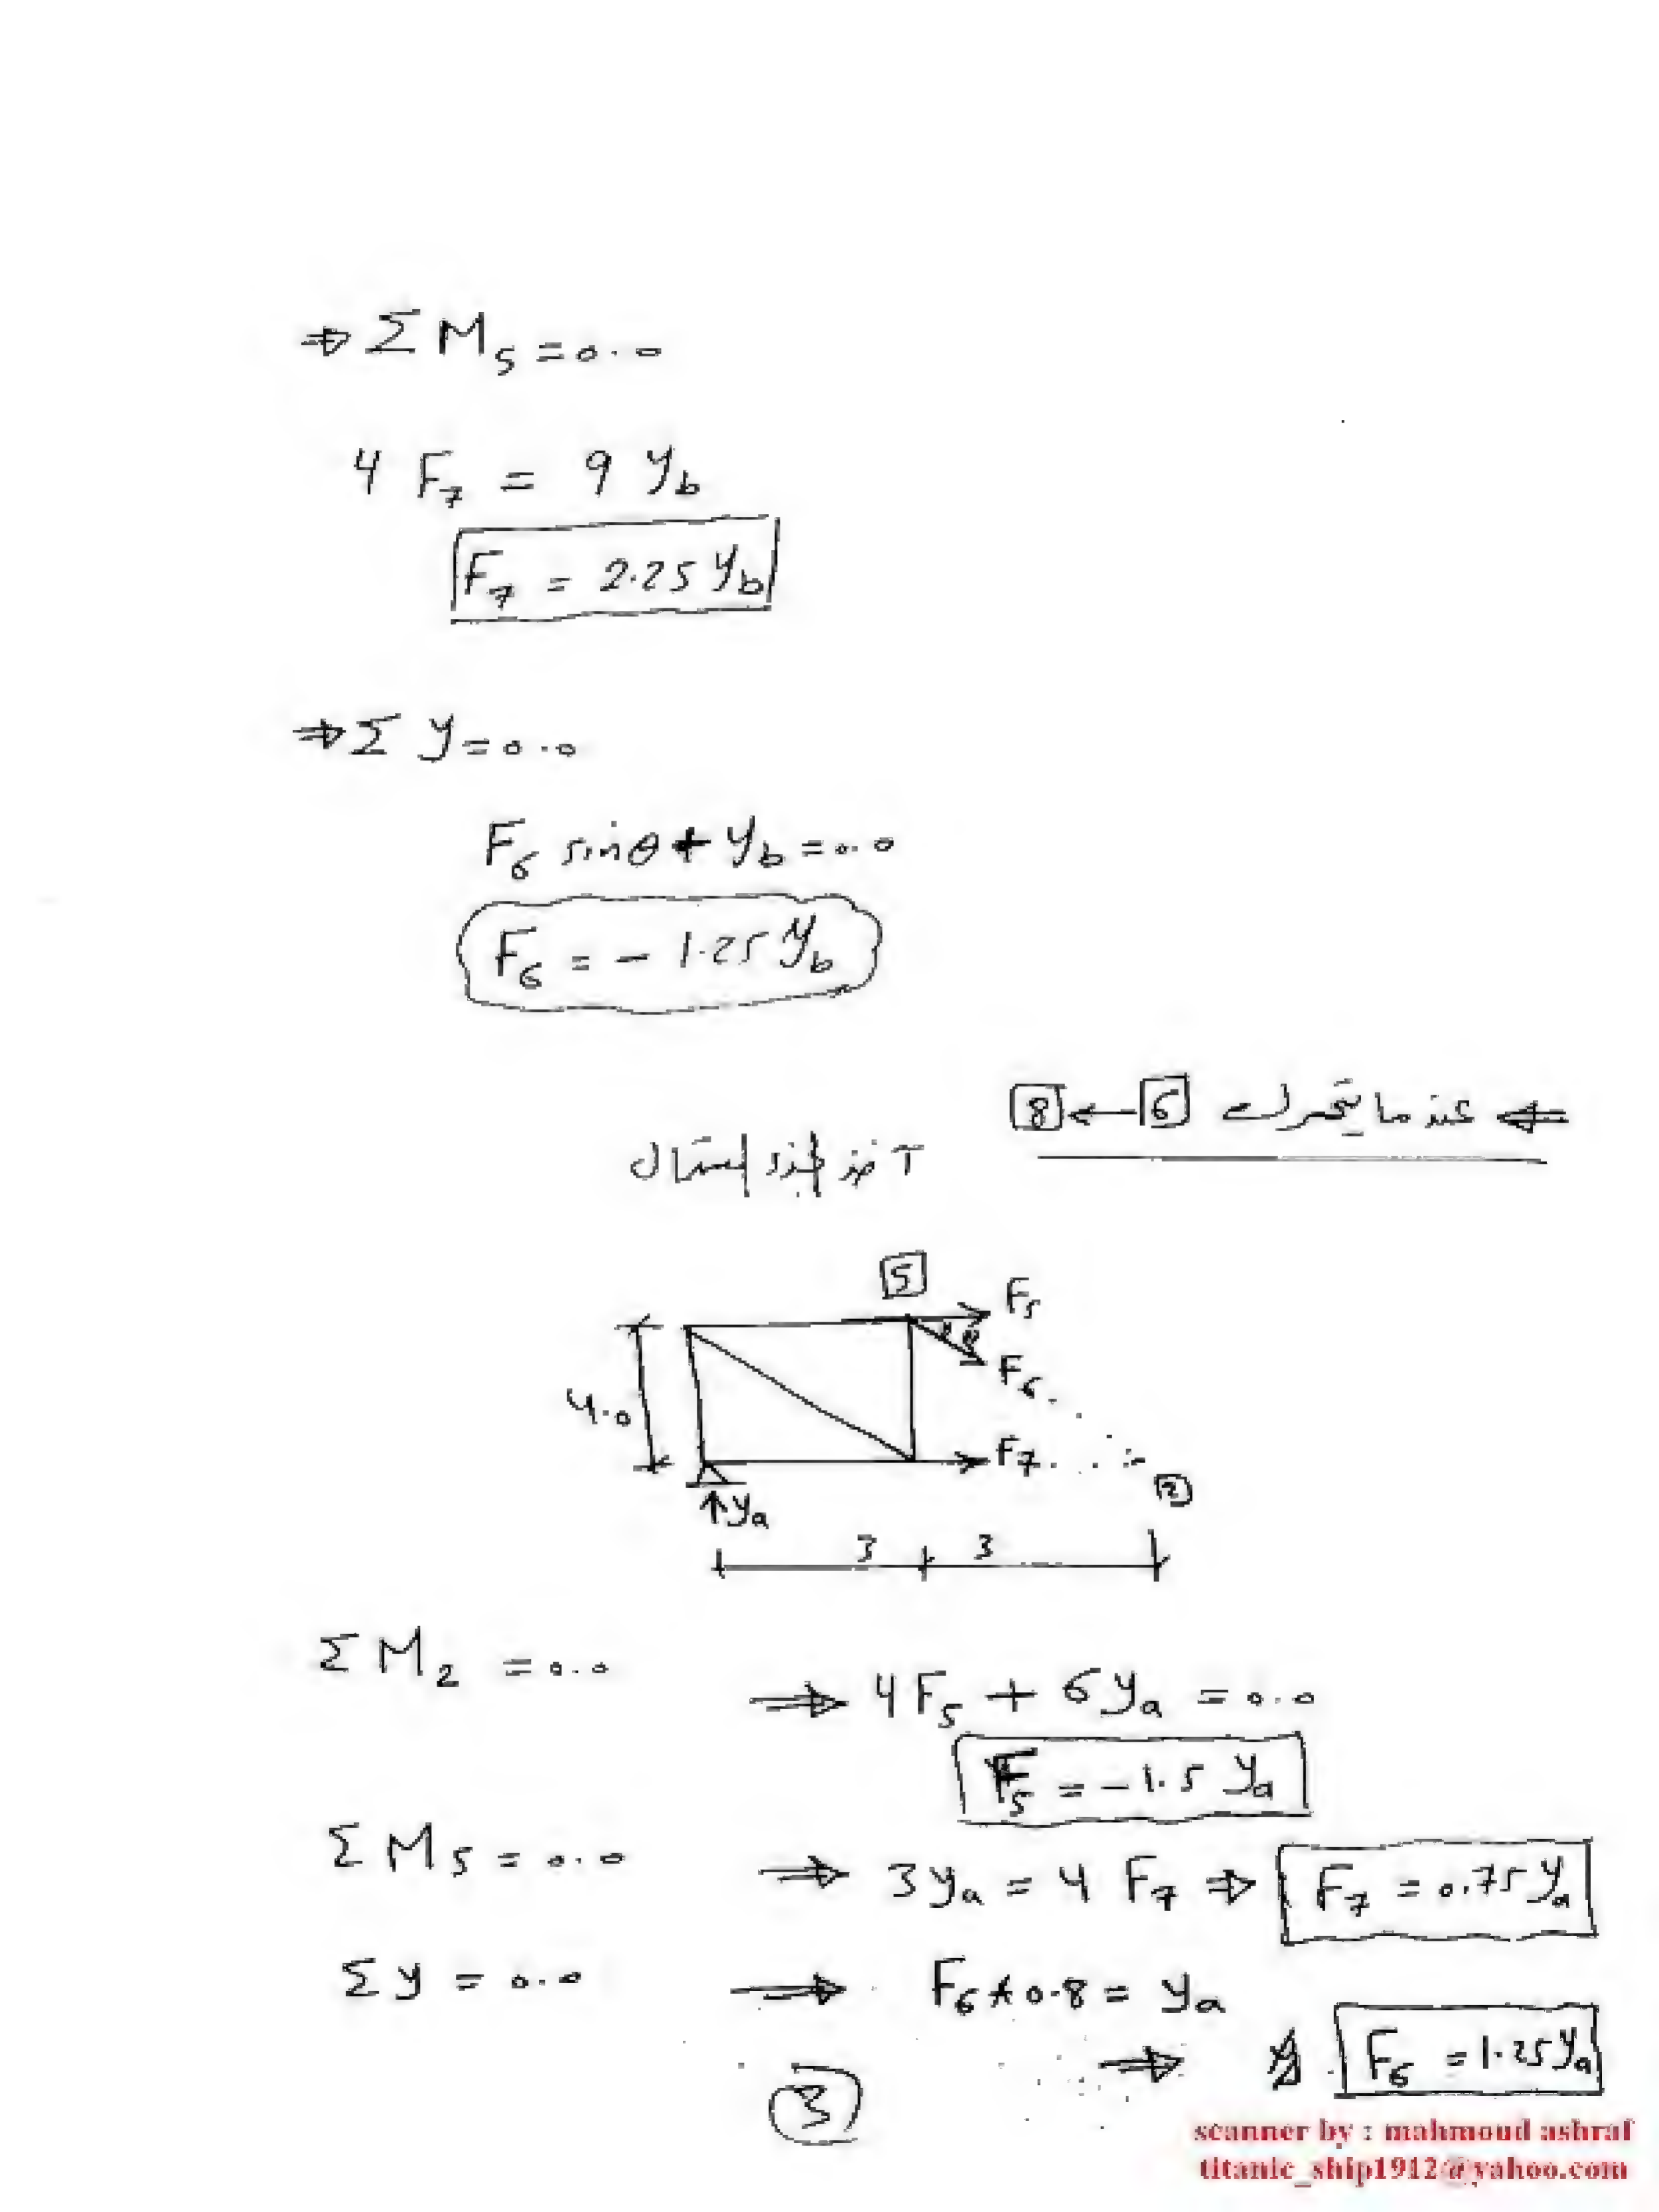 ⇒ Σ M₅ = 0.0
4 F₇ = 9 Y_b
F₇ = 2.25 Y_b
⇒ Σ y = 0.0
F₆ sinθ + Y_b = 0.0
F₆ = - 1.25 Y_b
⇐ عندما يتحرك 6 ← 8
نأخذ الجزء الشمال
5
F₅
F₆
4.0
F₇
2
↑Ya
3 3
Σ M₂ = 0.0 ⇒ 4F₅ + 6Ya = 0.0
F₅ = -1.5 Ya
Σ M₅ = 0.0 ⇒ 3Ya = 4 F₇ ⇒ F₇ = 0.75 Ya
Σ y = 0.0 ⇒ F₆*0.8 = Ya
⇒ F₆ = 1.25 Ya
3
scanner by : mahmoud ashraf
titanic_ship1912@yahoo.com